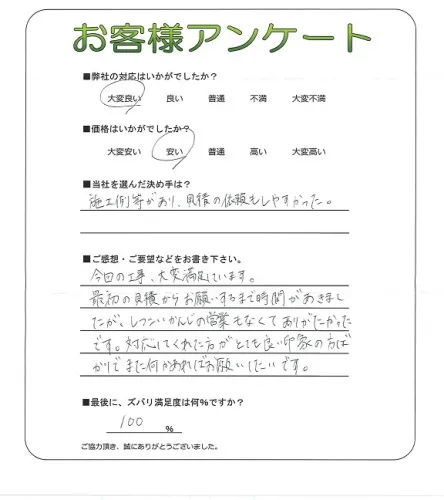 お客様アンケート
■弊社の対応はいかがでしたか？
大変良い 良い 普通 不満 大変不満
■価格はいかがでしたか？
大変安い 安い 普通 高い 大変高い
■当社を選んだ決め手は？
施工例等があり、見積の依頼もしやすかった。
■ご感想・ご要望などをお書き下さい。
今回の工事、大変満足しています。
最初の見積からお願いするまで時間があきまし
たが、しつこいかんじの営業もなくてありがたかった
です。対応してくれた方がとても良い印象の方ば
かりでまた何かあればお願いしたいです。
■最後に、ズバリ満足度は何%ですか？
100 %
ご協力頂き、誠にありがとうございました。